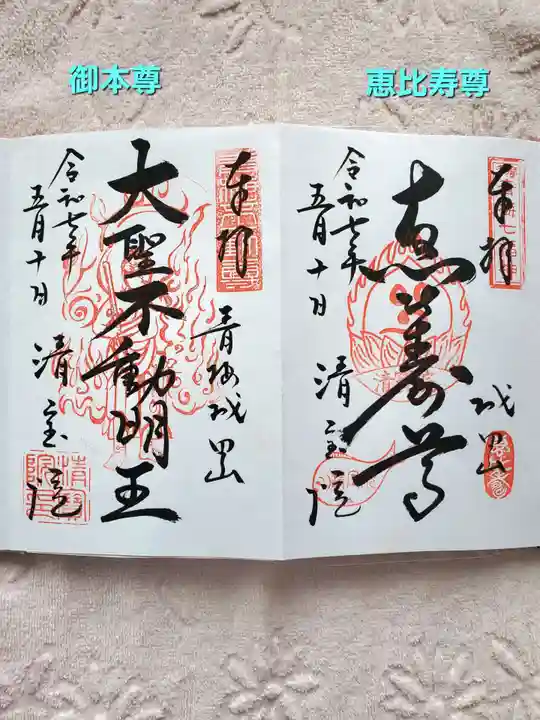 御本尊
恵比寿尊
奉拝
青梅成田山
大聖不動明王
令和七年
五月十日
清宝院
奉拝
成田山
恵比寿尊
令和七年
五月十日
清宝院